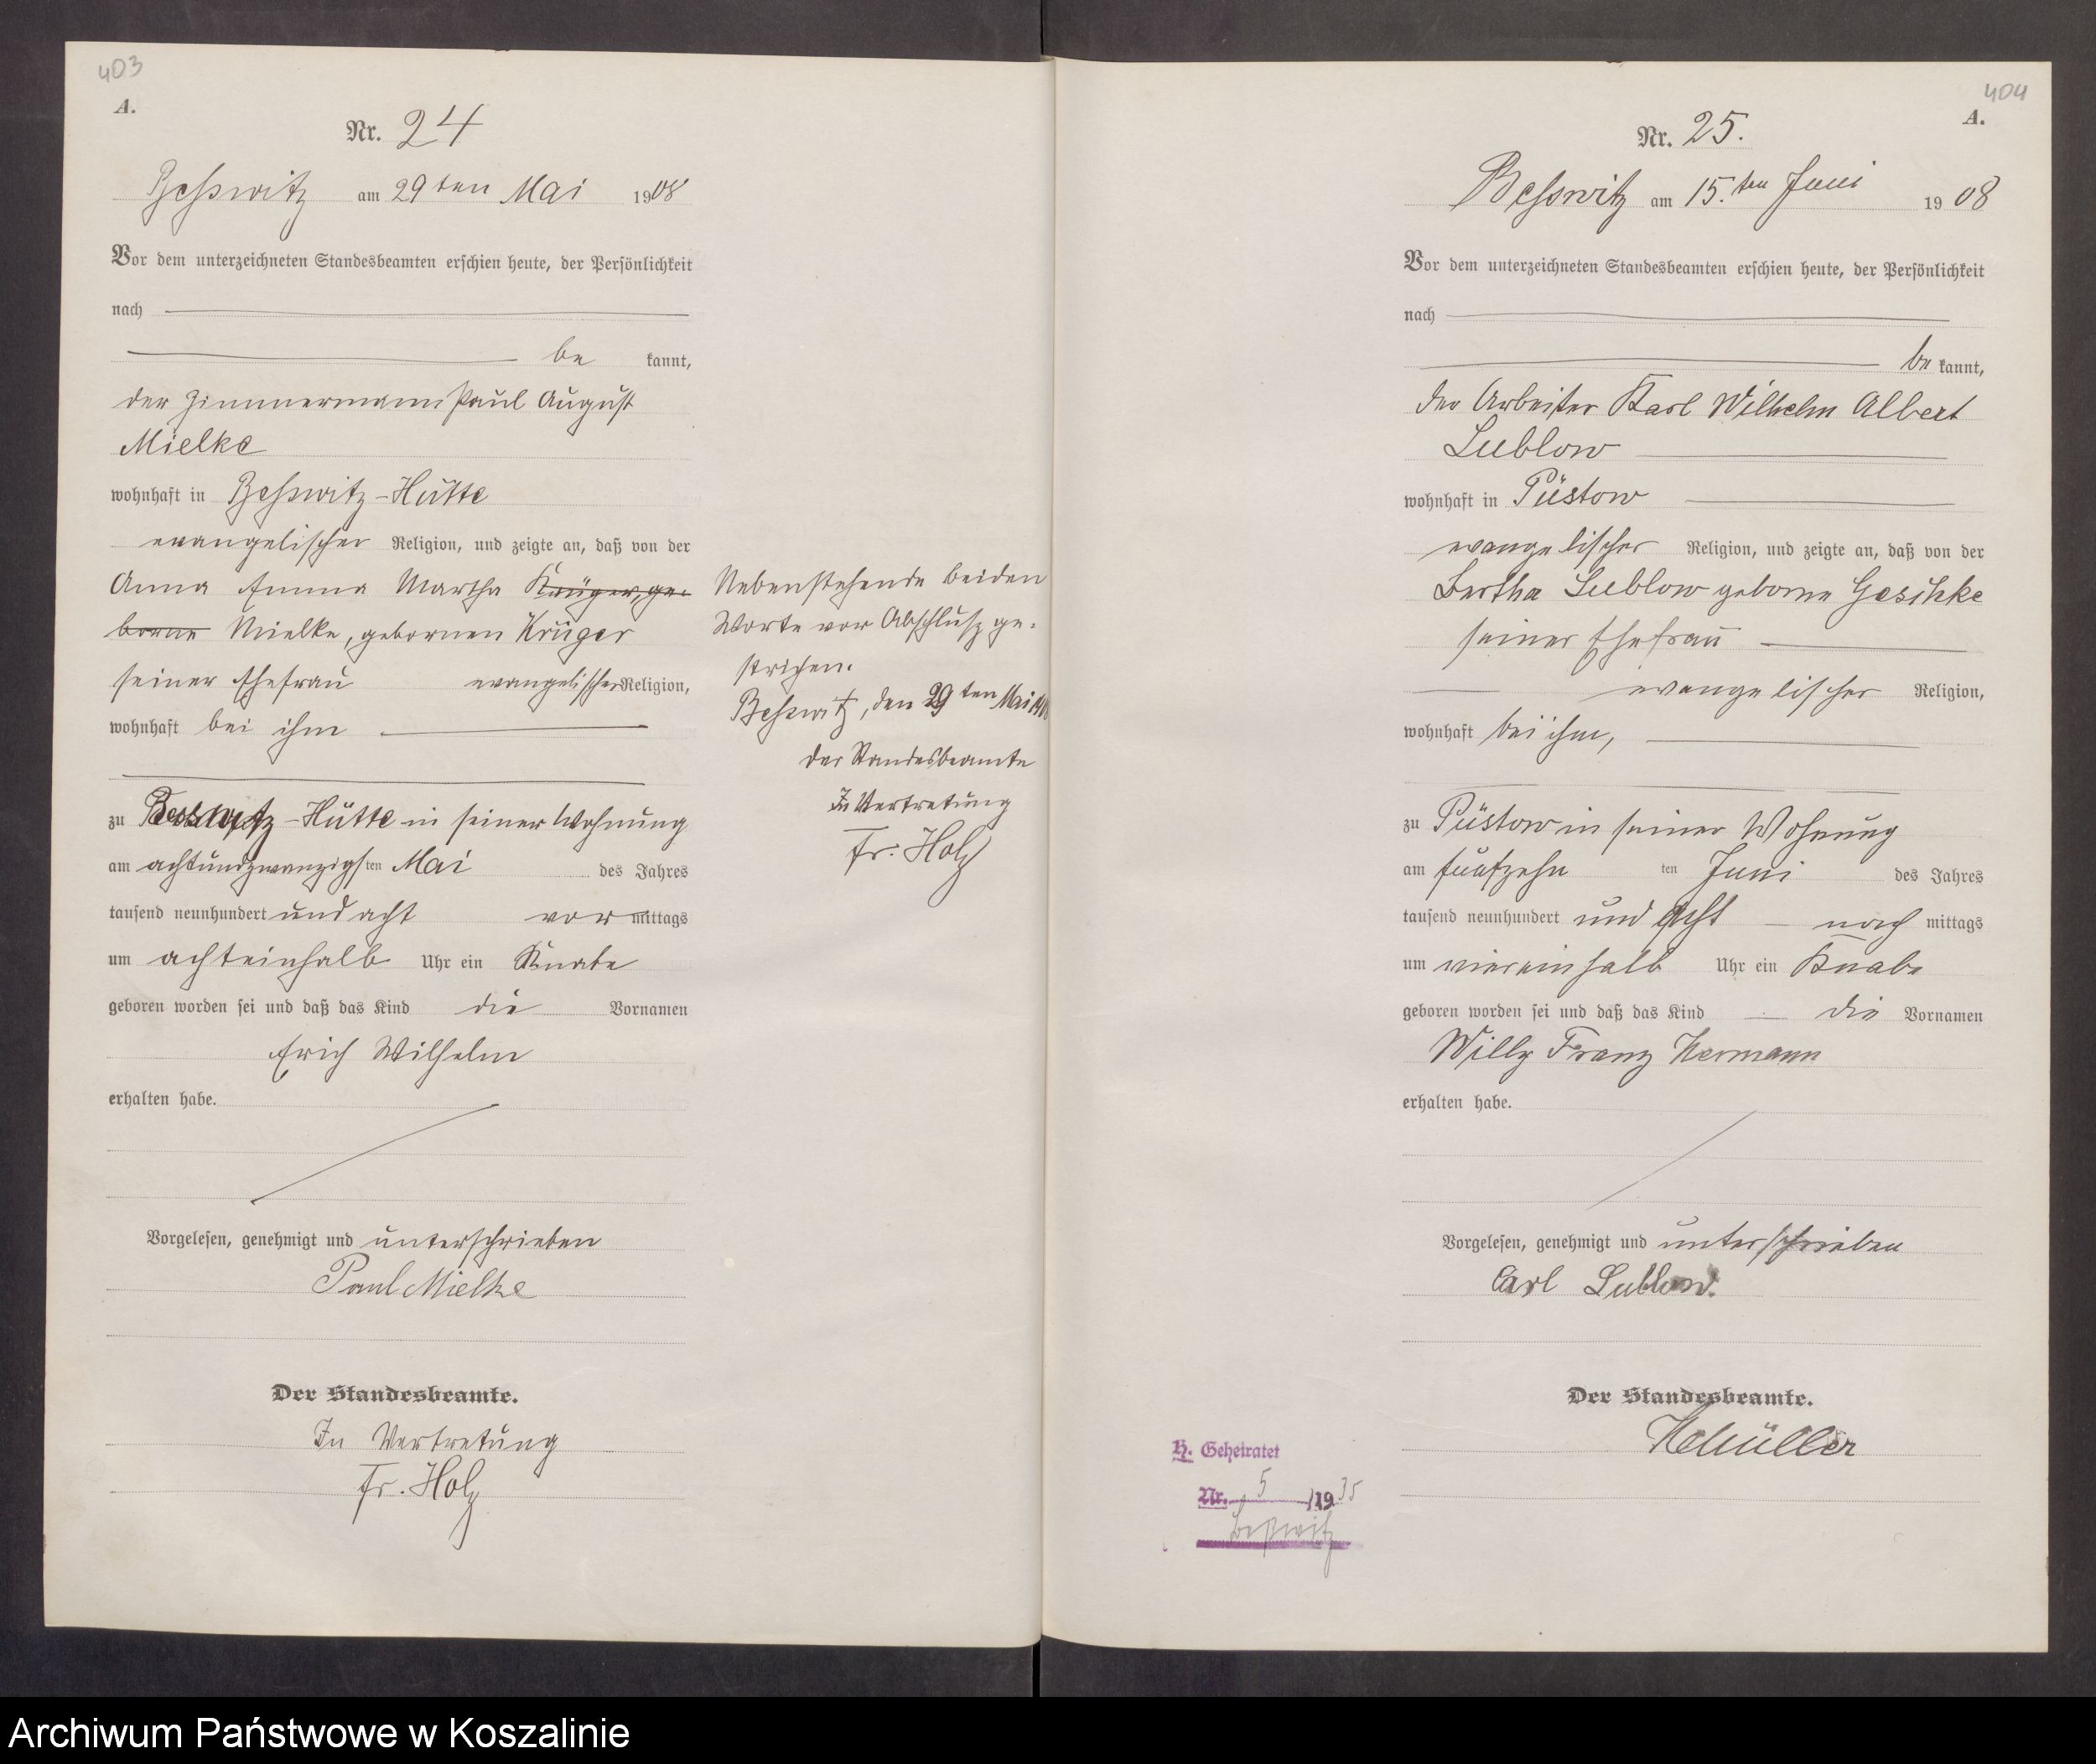 403
A.
Nr. 24
Beßwitz am 29ten Mai 1908
Vor dem unterzeichneten Standesbeamten erschien heute, der Persönlichkeit
nach
be kannt,
der Zimmermann Paul August
Mielke
wohnhaft in Beßwitz-Hütte
evangelischer Religion, und zeigte an, daß von der
Anna Emma Martha Krüger, ge-
borne Mielke, gebornen Krüger
seiner Ehefrau evangelischer Religion,
wohnhaft bei ihm
zu Besswitz-Hütte in seiner Wohnung
am achtundzwanzigsten Mai des Jahres
tausend neunhundert und acht vormittags
um achteinhalb Uhr ein Knabe
geboren worden sei und daß das Kind die Vornamen
Erich Wilhelm
erhalten habe.
Vorgelesen, genehmigt und unterschrieben
Paul Mielke
Der Standesbeamte.
In Vertretung
Fr. Holz
Nebenstehende beiden
Worte vor Abschluß ge-
strichen.
Beßwitz, den 29ten Mai 1908
Der Standesbeamte
In Vertretung
Fr. Holz
404
A.
Nr. 25.
Beßwitz am 15.ten Juni 1908
Vor dem unterzeichneten Standesbeamten erschien heute, der Persönlichkeit
nach
be kannt,
der Arbeiter Karl Wilhelm Albert
Lublow
wohnhaft in Püstow
evangelischer Religion, und zeigte an, daß von der
Bertha Lublow geborne Geschke
seiner Ehefrau
evangelischer Religion,
wohnhaft bei ihm,
zu Püstow in seiner Wohnung
am fünfzehn ten Juni des Jahres
tausend neunhundert und acht nach mittags
um viereinhalb Uhr ein Knabe
geboren worden sei und daß das Kind die Vornamen
Willy Franz Hermann
erhalten habe.
Vorgelesen, genehmigt und unterschrieben
Carl Lublow.
Der Standesbeamte.
H. Geheiratet
Nr. 5 /1935
Beßwitz
Archiwum Państwowe w Koszalinie